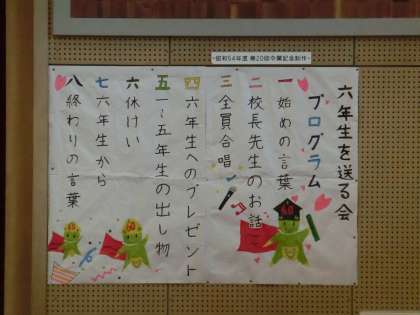 昭和54年度 第20回卒業記念制作
六年生を送る会
プログラム
一 始めの言葉
二 校長先生のお話
三 全員合唱
四 六年生へのプレゼント
五 一~五年生の出し物
六 休けい
七 六年生から
八 終わりの言葉
60
60
60